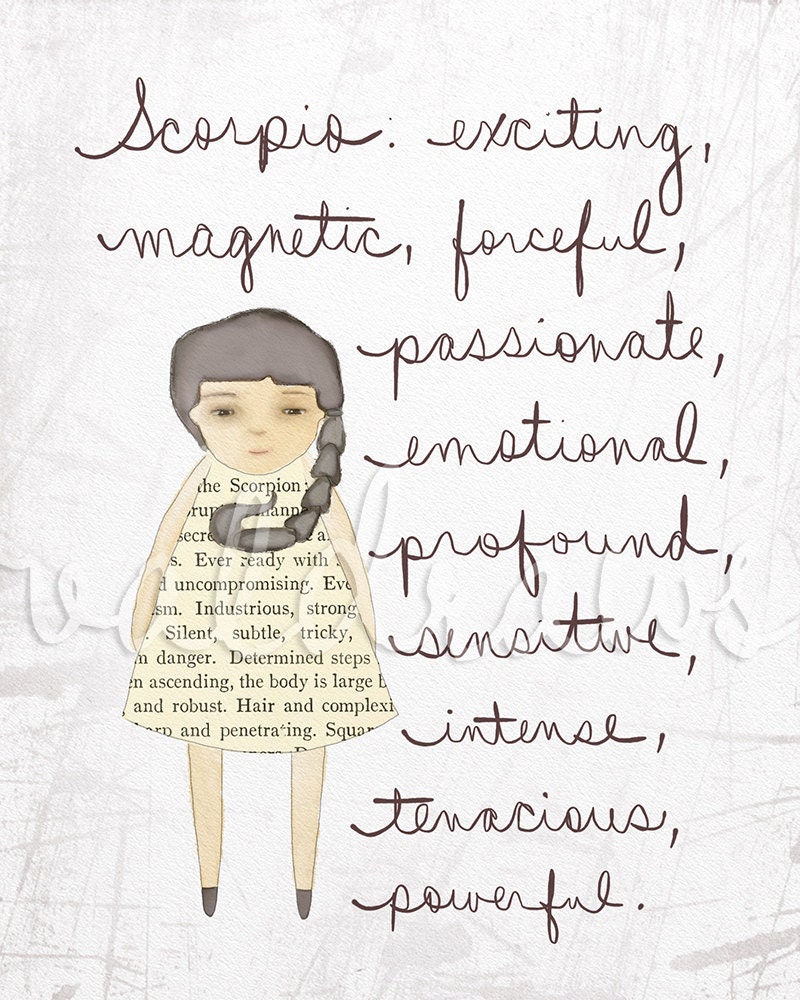 Scorpio: exciting,
magnetic, forceful,
passionate,
emotional,
profound,
sensitive,
intense,
tenacious,
powerful.
the Scorpion:
Ever ready with
uncompromising. Eve
ism. Industrious, strong
Silent, subtle, tricky,
danger. Determined steps
ascending, the body is large
and robust. Hair and complexi
and penetrating. Squar